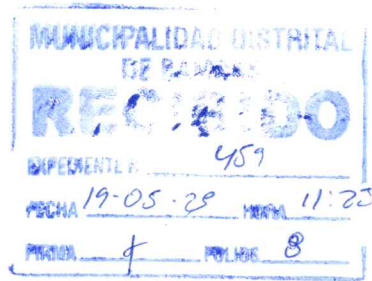 MUNICIPALIDAD DISTRITAL
DE
RECIBIDO
EXPEDIENTE N 459
FECHA 19-05-29 HORA 11:23
FIRMA FOLIOS 8